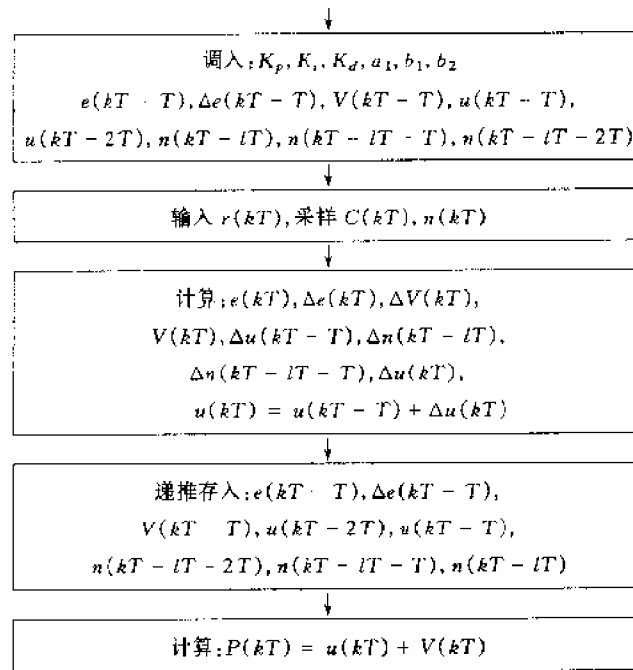 调入:K_p, K_i, K_d, a_1, b_1, b_2
e(kT - T), Δe(kT - T), V(kT - T), u(kT - T),
u(kT - 2T), n(kT - lT), n(kT - lT - T), n(kT - lT - 2T)
输入 r(kT), 采样 C(kT), n(kT)
计算:e(kT), Δe(kT), ΔV(kT),
V(kT), Δu(kT - T), Δn(kT - lT),
Δn(kT - lT - T), Δu(kT),
u(kT) = u(kT - T) + Δu(kT)
递推存入:e(kT - T), Δe(kT - T),
V(kT - T), u(kT - 2T), u(kT - T),
n(kT - lT - 2T), n(kT - lT - T), n(kT - lT)
计算:P(kT) = u(kT) + V(kT)